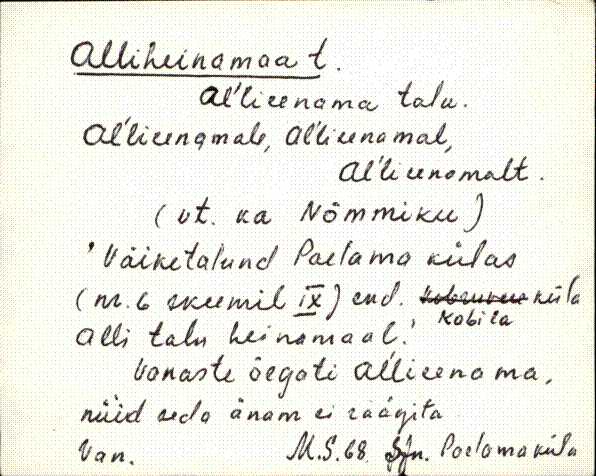 Alliheinamaa t.
Al'lieenama talu.
Al'lieenamale, Al'lieenamal,
Al'lieenamalt.
(vt. ka Nõmmiku)
'Väiketalund Paelama külas
(nr. 6 skeemil IX) end. küla
Kabila
Alli talu heinamaal.'
Vanaste öegati al'lieenama,
nüid seda änam ei räägita
Van. M.S. 68. Sjn. Paelama küla